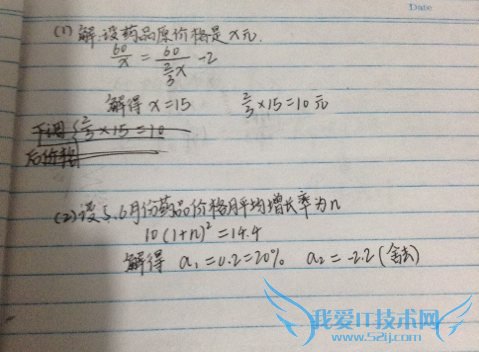 Date
(1) 解:设药品原价格是x元.
60/x = 60/(2/3 x) - 2
解得 x=15 2/3×15=10元
下调 2/3×15=10
后价格
(2)设5.6月份药品价格月平均增长率为n
10(1+n)²=14.4
解得 a₁=0.2=20% a₂=-2.2(舍去)
我爱IT技术网
www.52ij.com